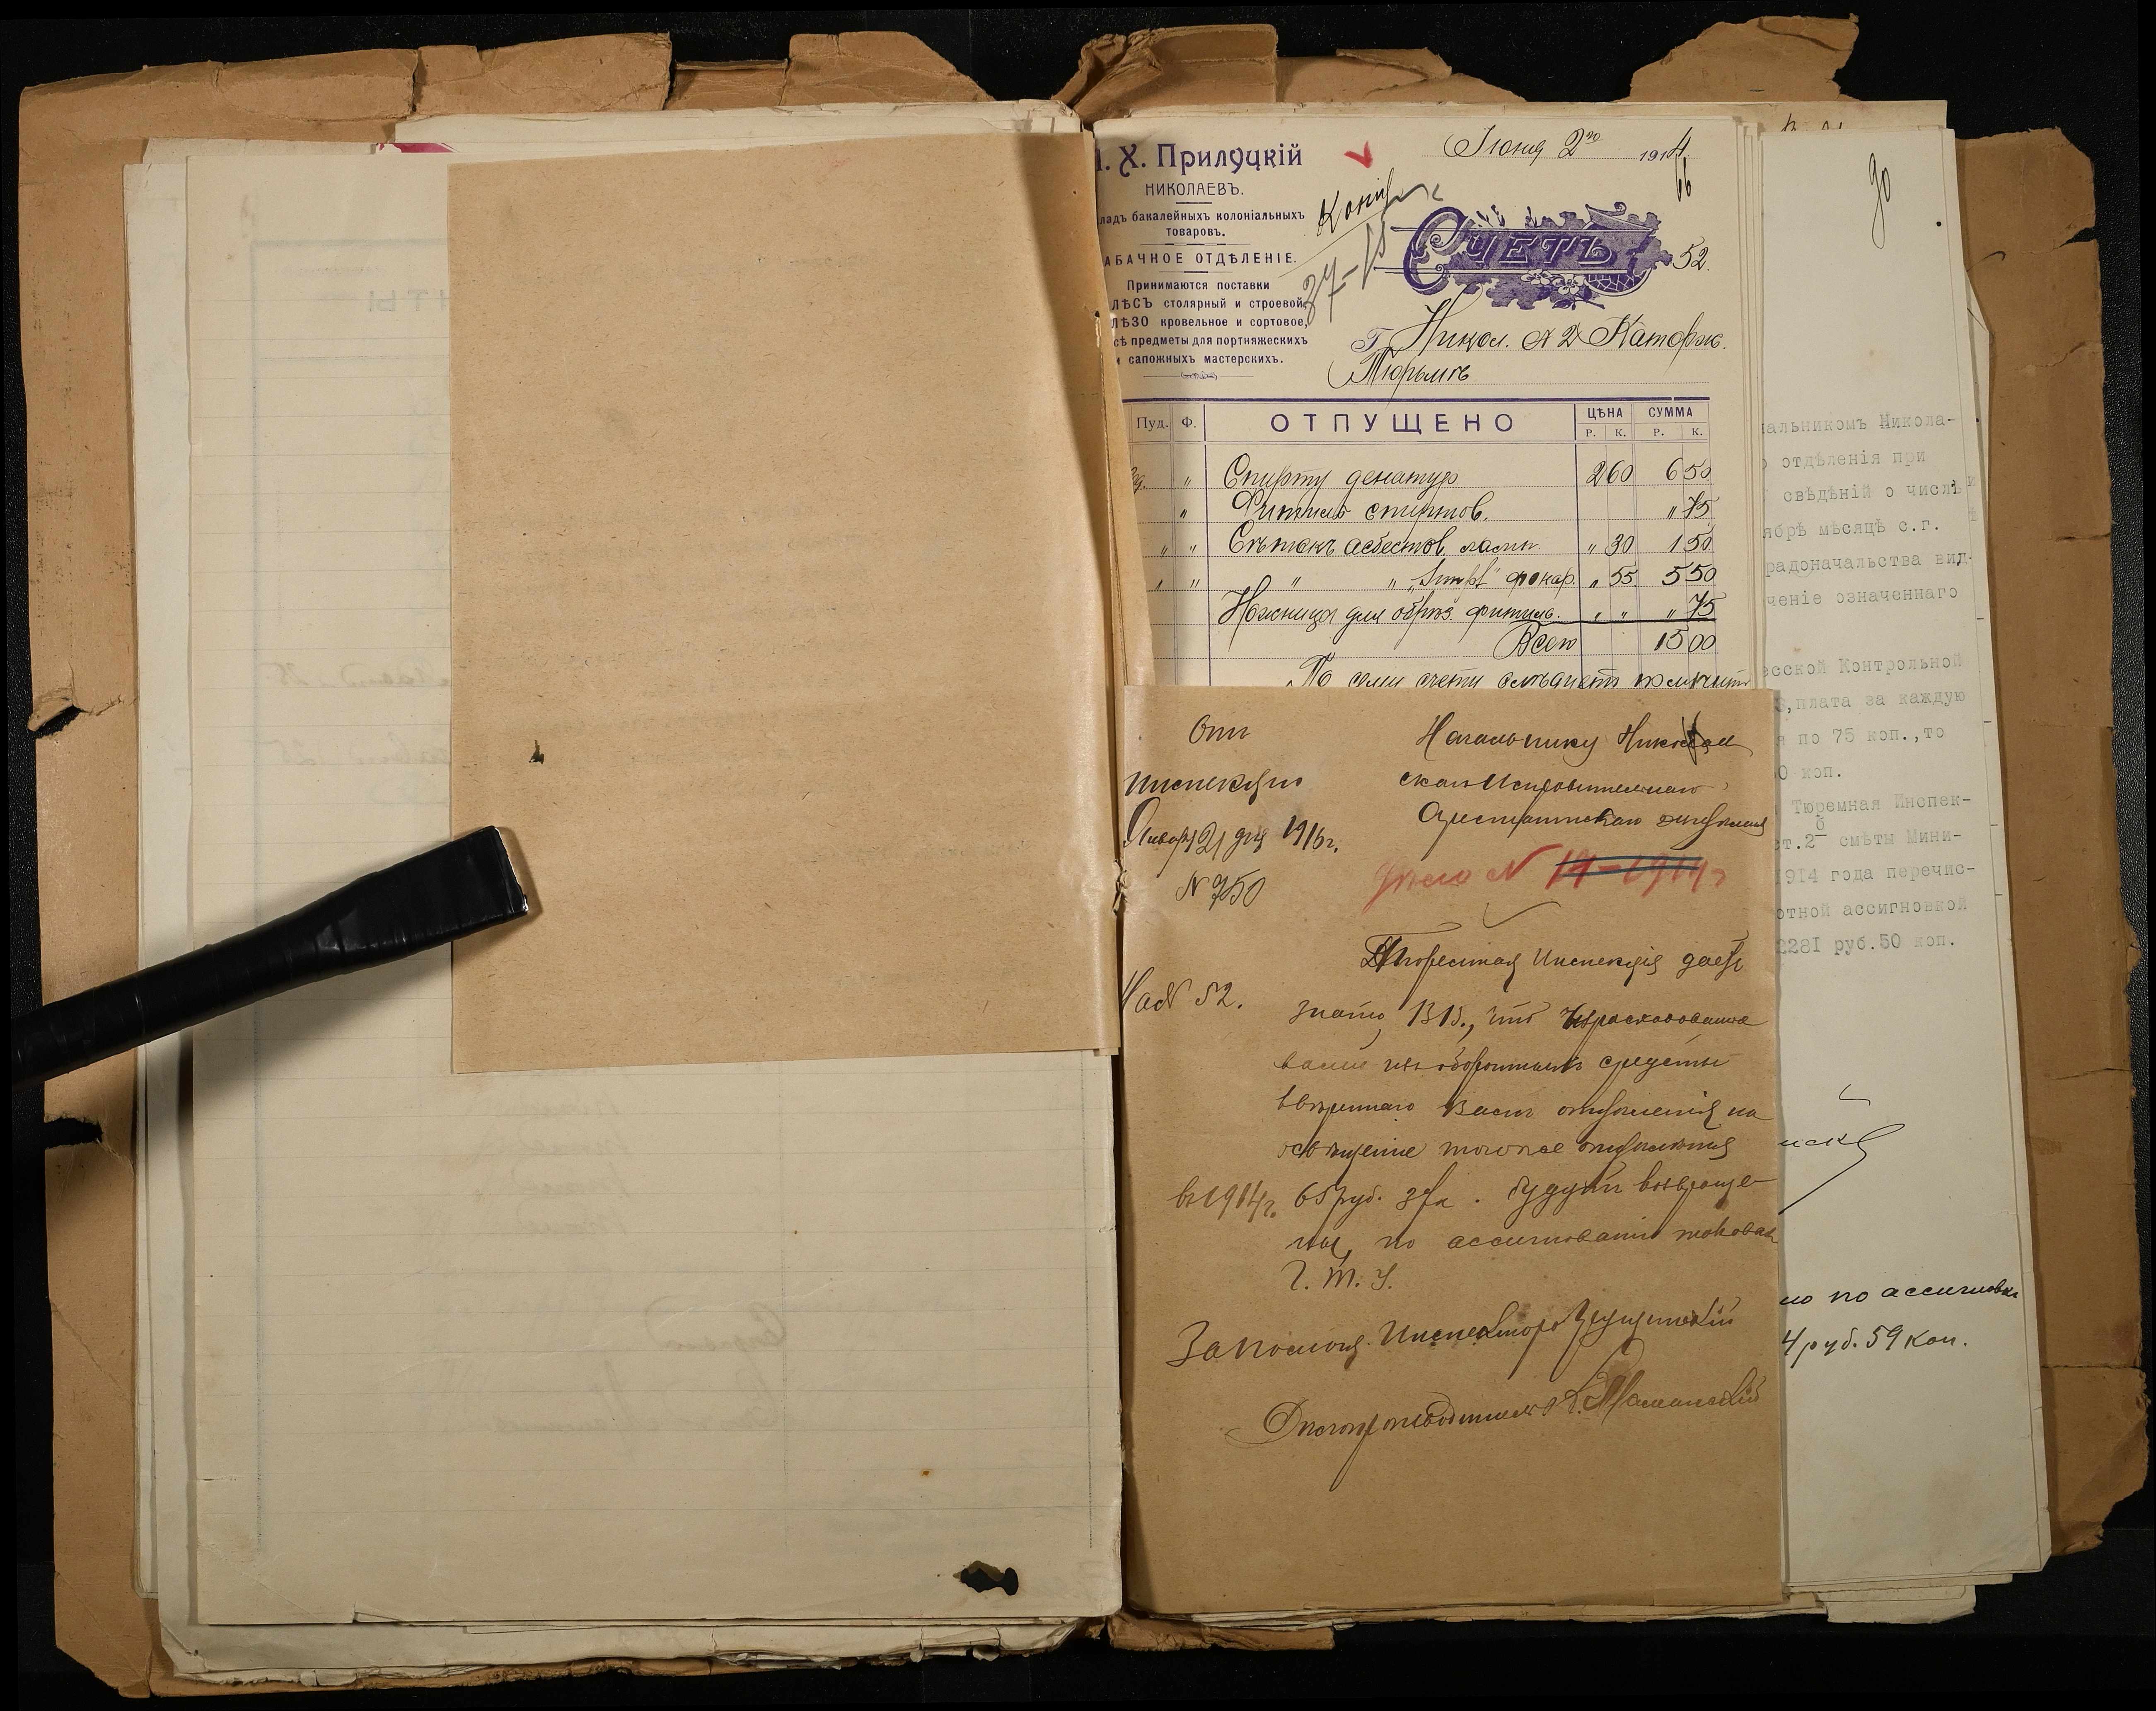 Х. Прилуцкій
НИКОЛАЕВЪ.
ладъ бакалейныхъ колоніальныхъ
товаровъ.
АБАЧНОЕ ОТДѢЛЕНІЕ.
Принимаются поставки
ЛѢСЪ столярный и строевой,
ЛѢЗО кровельное и сортовое,
сѣ предметы для портняжескихъ
и сапожныхъ мастерскихъ.
Іюня 2го 1914
66
Копія
СЧЕТЪ 52.
Г. Никол. № 2 Каторж.
Тюрьмѣ
Пуд. Ф. ОТПУЩЕНО ЦѢНА СУММА
Р. К. Р. К.
" Спирту денатур 2 60 6 50
" Фитиль спиртов. " 75
" " Сѣтокъ асбестов. ламп. " 30 1 50
" " " " фонар. " 55 5 50
Ножницы для обрѣз. фитиль. " " " 75
Всего 15 00
По сему счету слѣдуетъ
Отп
Инспекціи
Января 21 дня 1915г.
№ 750
На № 52.
Начальнику Николаев
скаго Исправительнаго
Арестантскаго отдѣленія
Дѣло № 14-1914г
Тюремная Инспекція даетъ
знать, В.В., что израсходованные
вами изъ оборотныхъ средствъ
ввѣреннаго Вамъ отдѣленія на
освѣщеніе того же отдѣленія
въ 1914г. 65 руб. 37к. будутъ возвраще-
ны, по ассигнованіи таковыхъ
Г. Т. У.
За помощ. Инспектора
Дѣлопроизводитель
90
альникомъ Никола-
о отдѣленія при
свѣдѣній о числѣ
ябрѣ мѣсяцѣ с.г.
радоначальства вид-
ченіе означеннаго
есской Контрольной
,плата за каждую
я по 75 коп.,то
0 коп.
Тюремная Инспек-
ст.2б смѣты Мини-
1914 года перечис-
отной ассигновкой
2281 руб.50 коп.
но по ассигновкѣ
4 руб. 59 коп.